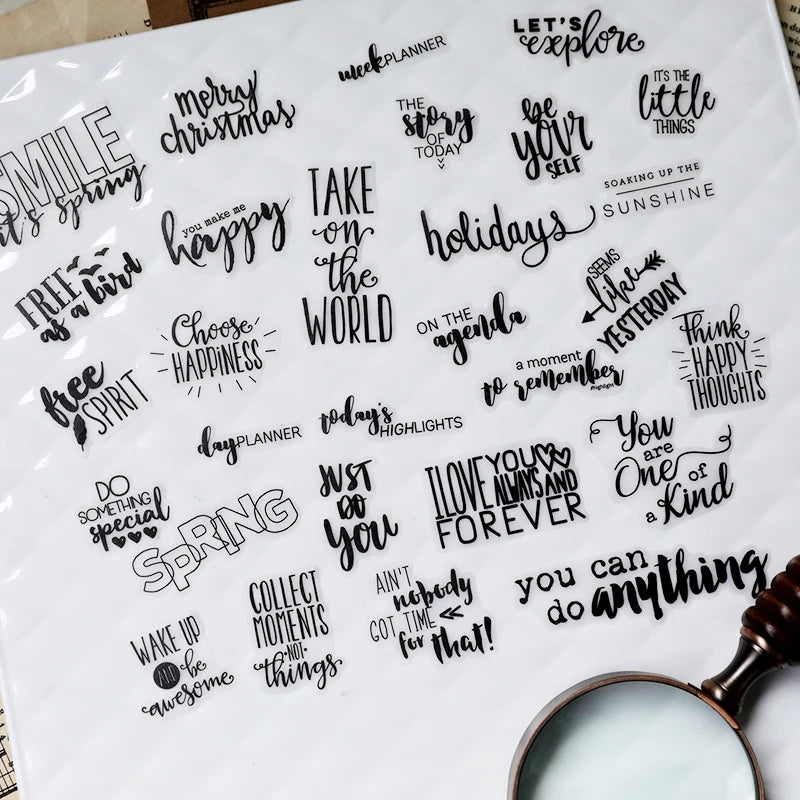 LET'S
explore
week PLANNER
merry
christmas
IT'S THE
little
THINGS
THE
story
OF
TODAY
be
YOUR
SELF
SMILE
it's spring
TAKE
on
the
WORLD
SOAKING UP THE
SUNSHINE
you make me
happy
holidays
FREE
as a bird
SEEMS
like
YESTERDAY
ON THE
agenda
Choose
HAPPINESS
Think
HAPPY
THOUGHTS
a moment
to remember
free
SPIRIT
day PLANNER
today's
HIGHLIGHTS
You
are
One of
a Kind
I LOVE YOU
ALWAYS AND
FOREVER
JUST
DO
YOU
DO
SOMETHING
special
SPRING
you can
do anything
COLLECT
MOMENTS
NOT
things
AIN'T
nobody
GOT TIME
for that!
WAKE UP
AND be
awesome